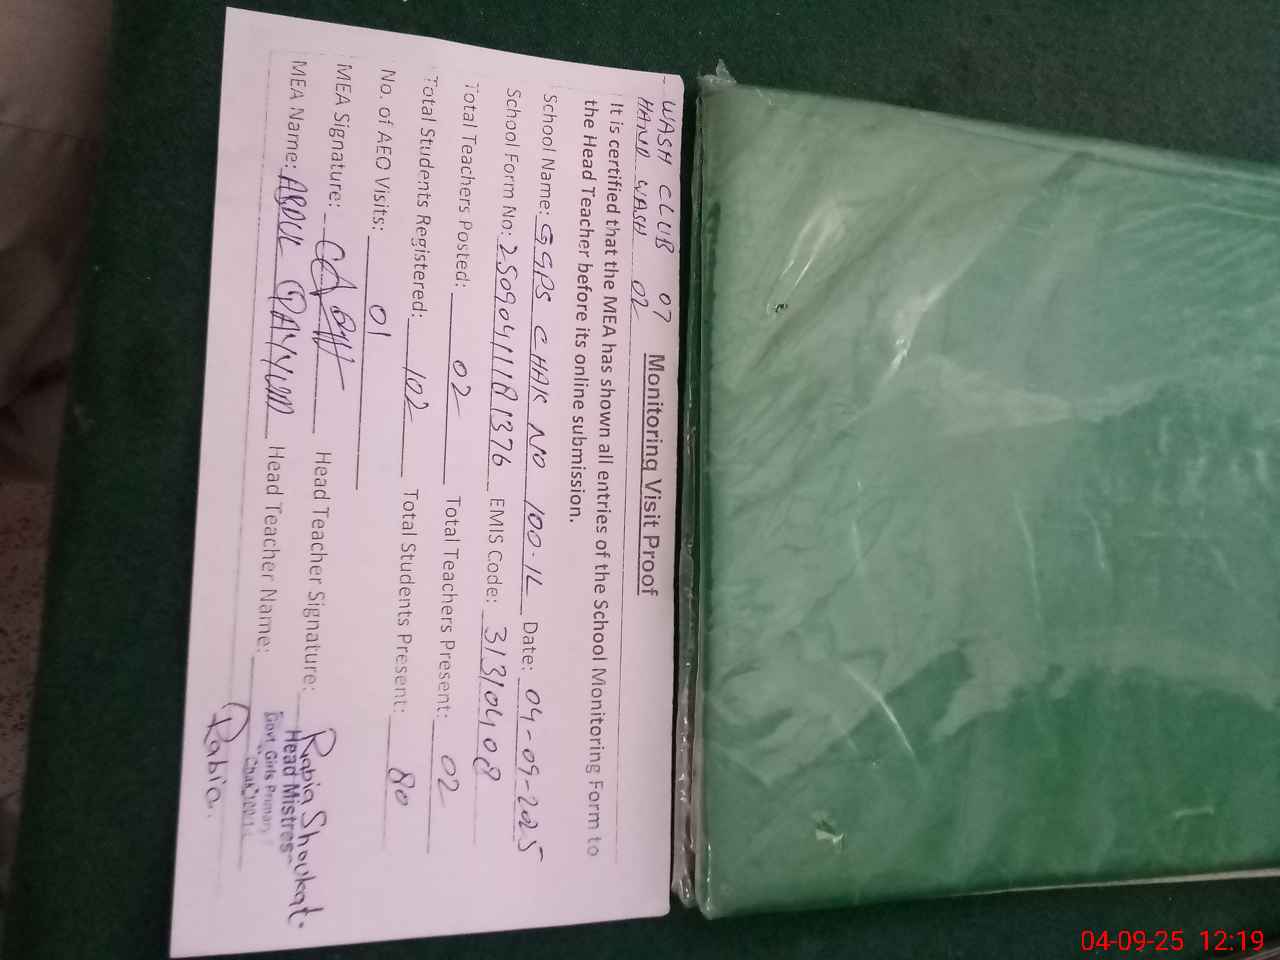 WASH CLUB 07
HAND WASH 02
Monitoring Visit Proof
It is certified that the MEA has shown all entries of the School Monitoring Form to
the Head Teacher before its online submission.
School Name: GGPS CHAK NO 100-1L Date: 04-09-2025
School Form No: EMIS Code: 31310408
Total Teachers Posted: 02 Total Teachers Present: 02
Total Students Registered: 102 Total Students Present: 80
No. of AEO Visits: 01
MEA Signature: Head Teacher Signature: Rabia Shoukat.
MEA Name: ABDUL QAYYUM Head Teacher Name: Rabia
Head Mistres
Govt. Girls Primary
Chak
04-09-25 12:19